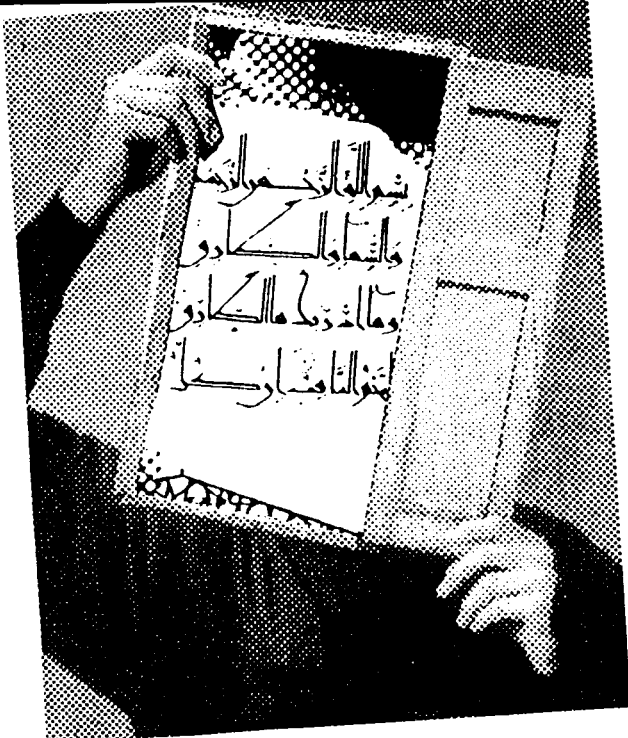 بسم الله الرحمن الرحيم
والسماء والطارق
وما ادريك ما الطارق
النجم الثاقب ان كل